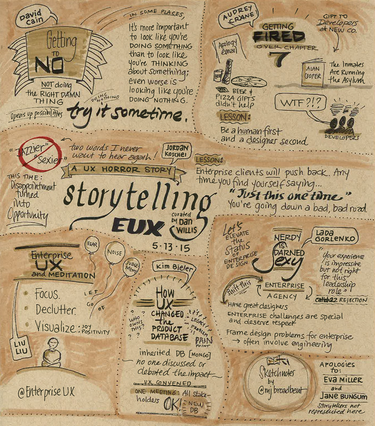 David Cain
Getting to NO
NOT doing the RIGHT DAMN THING
Opens up possibilities
IN SOME PLACES
It's more important
to look like you're
DOING SOMETHING
than to look like
you're THINKING
about something;
even worse is
looking like you're
DOING NOTHING.
try it sometime.
AUDREY CRANE
GETTING
FIRED
OVER CHAPTER
7
GIFT TO
Developers
at NEW CO.
ALAN
COOPER
The Inmates
Are Running
the Asylum
BEER &
PIZZA GIFTS
didn't help
WTF?!?
DEVELOPERS
LESSON:
Be a human first
and a designer second.
"Sexier"
two words I never
want to hear again!
JORDAN
KOSCHEI
A UX HORROR STORY
THIS TIME:
Disappointment
turned
into
Opportunity
LESSON:
Enterprise clients will push back. Any
time you find yourself saying...
"Just this one time"
You're going down a bad, bad road.
storytelling
EUX
curated
by
DAN
WILLIS
5-13-15
Enterprise
UX
and MEDITATION
NOISE
Focus.
Declutter.
Visualize:
POSITIVITY
LET
GO
LIU
LIU
@Enterprise UX
Kim Bieler
HOW
UX
CHANGED
the
PRODUCT
DATABASE
PAIN
inherited DB
no one discussed or
debated the impact
UX CONVENED
ONE MEETING
All stake-
holders
OK!
NEW
DB
Let's
ELEVATE
the
STATUS
of
ENTERPRISE
DESIGN
NERDY
&
DARNED
Sexy
LADA
GORLENKO
"Your experience
is impressive
but not right
for this
leadership
role"
REJECTION
Built this
ENTERPRISE
AGENCY
Have great designers
ENTERPRISE challenges are special
and deserve respect
Frame design problems for enterprise
often involve engineering
Sketchnotes
by
@mjbroadbent
APOLOGIES
TO:
EVA MILLER
and
JANE BUNGUM
Storytellers not
represented here